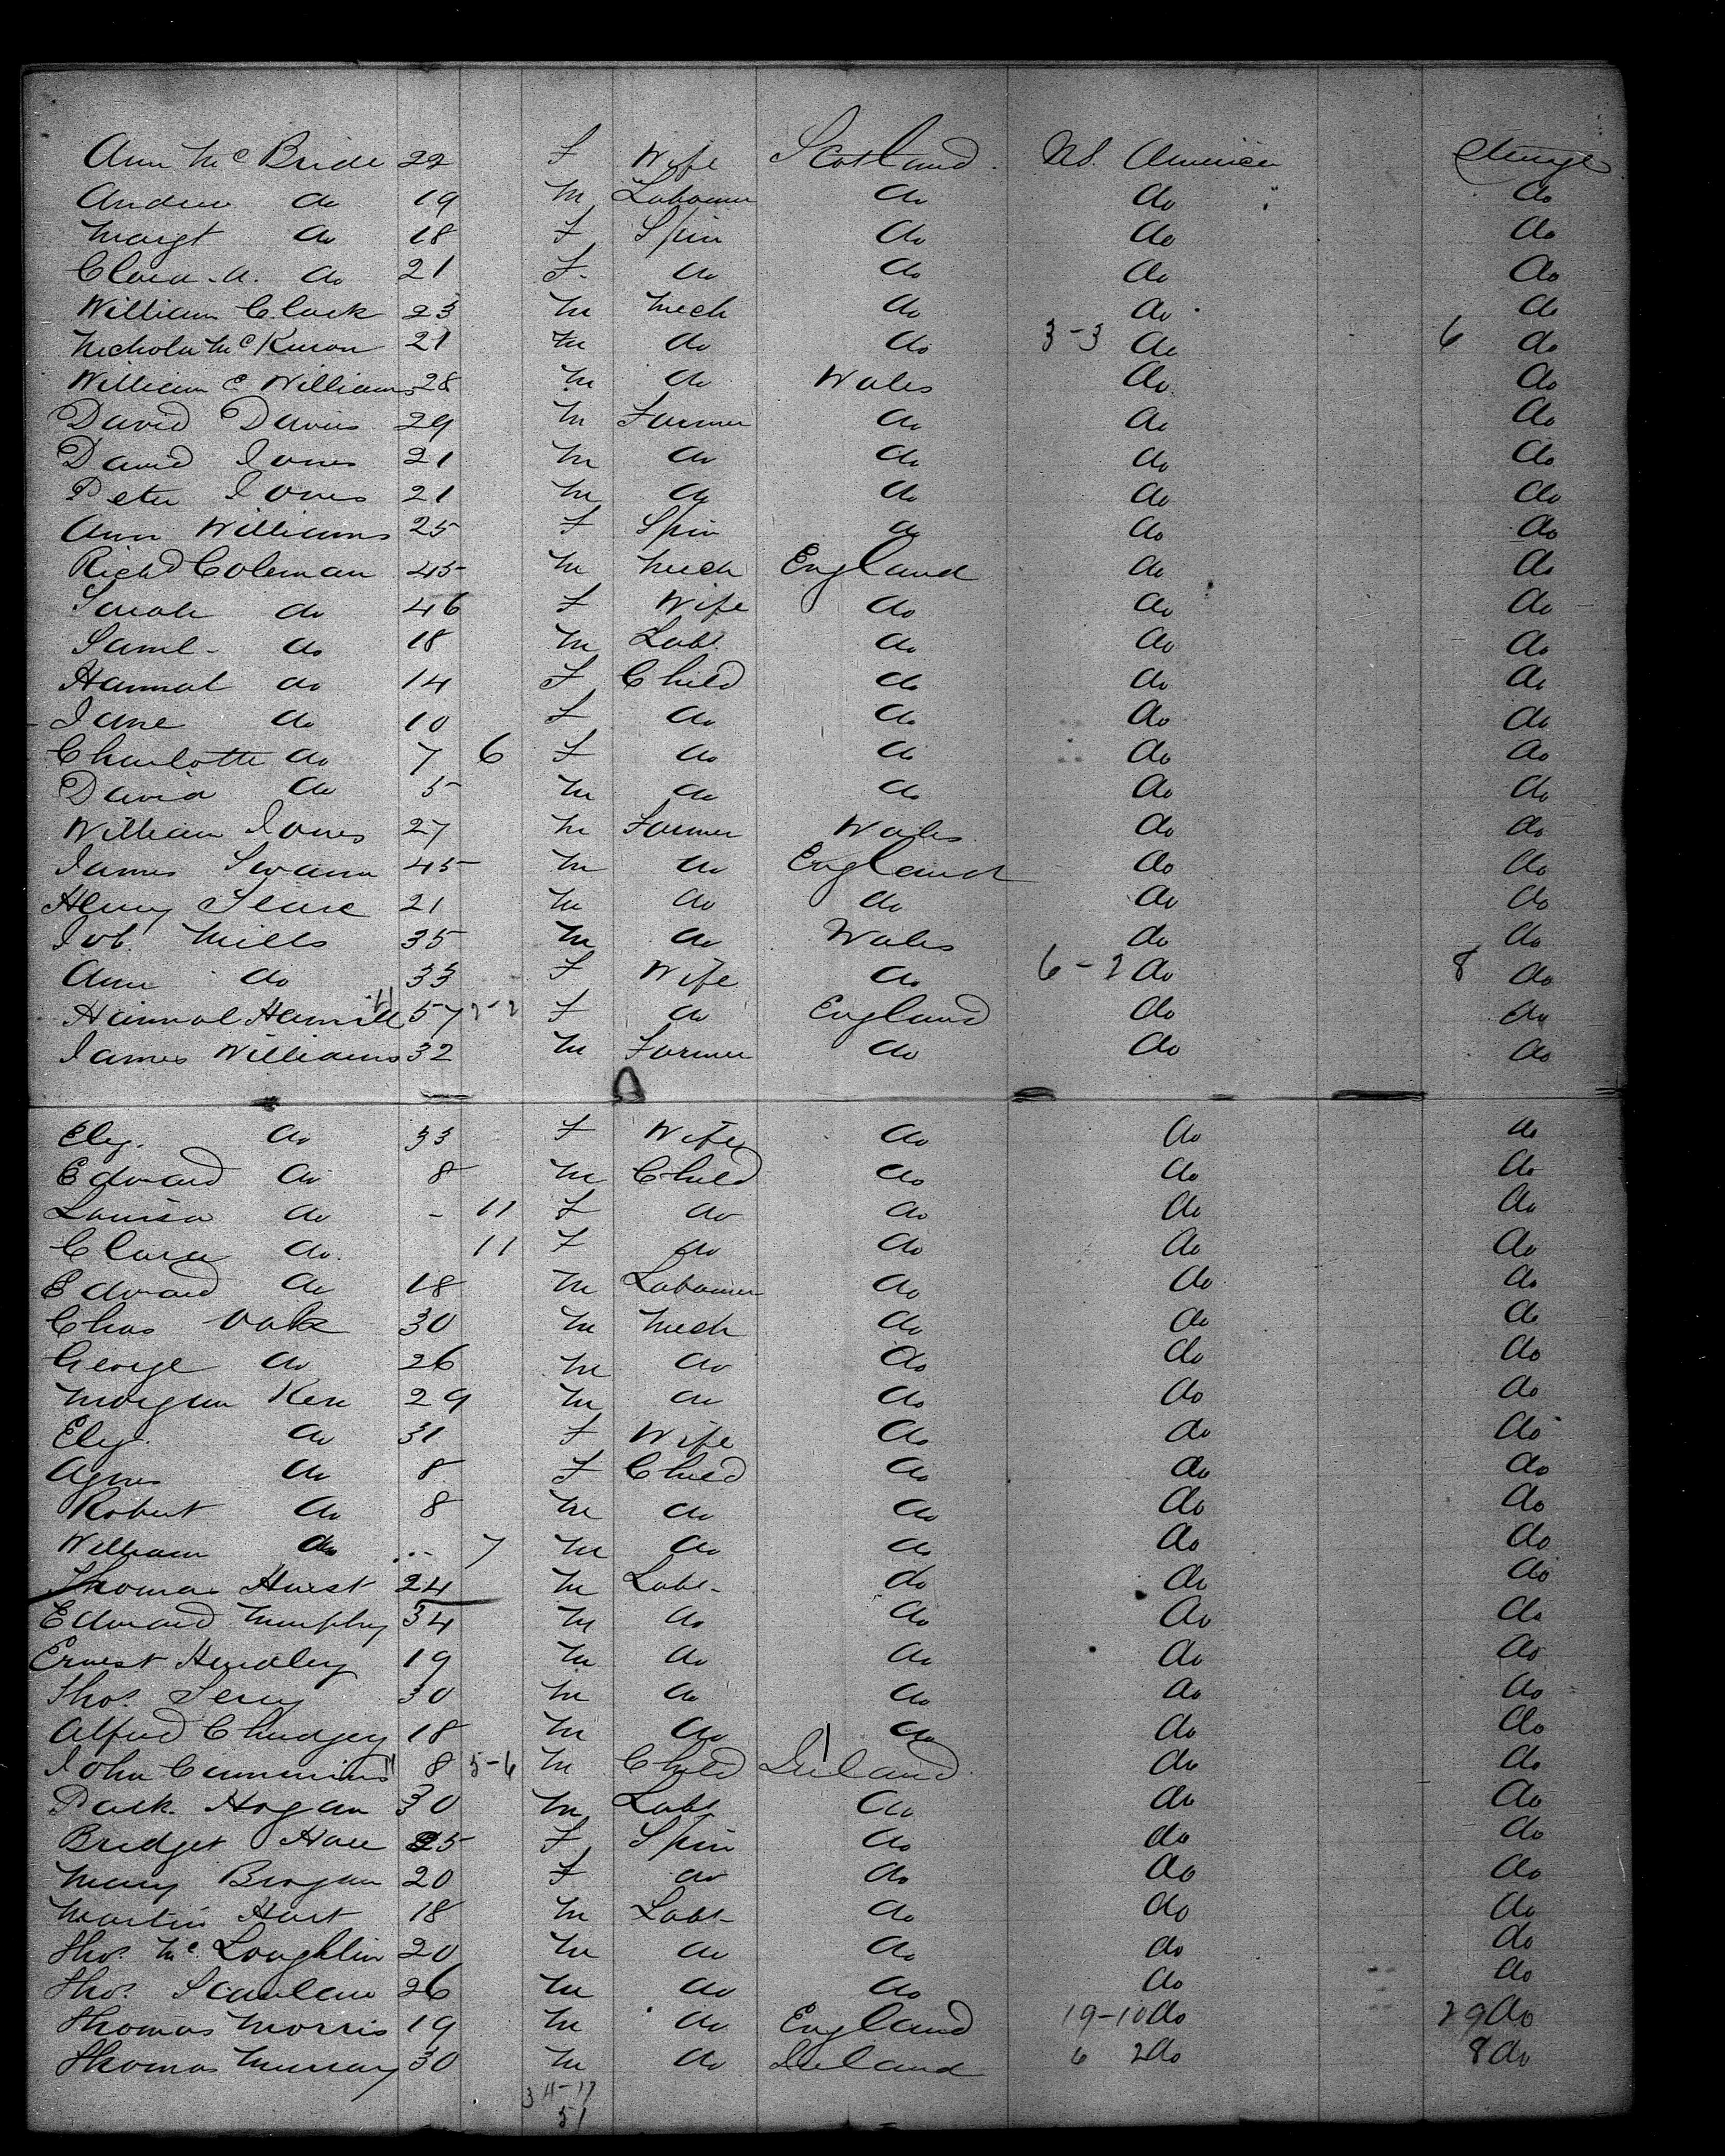 Ann McBride 22 F Wife Scotland US. America Steerage
Andrew do 19 M Labourer do do do
Margt do 18 F Spin do do do
Clara A. do 21 F. do do do do
William Clark 23 M Mech do do do
Nichola 21 M do do 3-3 do 6 do
William E Williams 28 M do Wales do do
David Davies 29 M Farmer do do do
David Jones 21 M do do do do
Peter Jones 21 M do do do do
Ann Williams 25 F Spin do do do
Richd Coleman 45 M Mech England do do
Sarah do 46 F Wife do do do
Saml. do 18 M Labr. do do do
Hannah do 14 F Child do do do
Jane do 10 F do do do do
Charlotte do 7 6 F do do do do
David do 5 M do do do do
William Jones 27 M Farmer Wales do do
James Swann 45 M do England do do
Henry 21 M do do do do
Job. Mills 35 M do Wales do do
Ann do 33 F Wife do 6-2 do 8 do
Hannah 57 2-2 F do England do do
James Williams 32 M Farmer do do do
Elez. do 33 F Wife do do do
Edward do 8 M Child do do do
Louisa do - 11 F do do do do
Clara do. 11 F do do do do
Edward do 18 M Labourer do do do
Chas 30 M Mech do do do
George do 26 M do do do do
Morgan 29 M do do do do
Elez. do 31 F Wife do do do
Agnes do 8 F Child do do do
Robert do 8 M do do do do
William do 7 M do do do do
Thomas Hurst 24 M Labr. do do do
Edward Murphy 34 M do do do do
Ernest Hendley 19 M do do do do
Thos. 30 M do do do do
Alfred Chudgey 18 M do do do do
John Cummins 8 5-6 M Child Ireland do do
Patk. Hogan 30 M Labr do do do
Bridget 25 F Spin do do do
Mary Brogan 20 F do do do do
Martin Hart 18 M Labr do do do
Thos. McLoughlin 20 M do do do do
Thos. Scanlan 26 M do do do do
Thomas Morris 19 M do England 19-10 do 29 do
Thomas Murray 30 M do Ireland 6 2 do 8 do
34-17
51